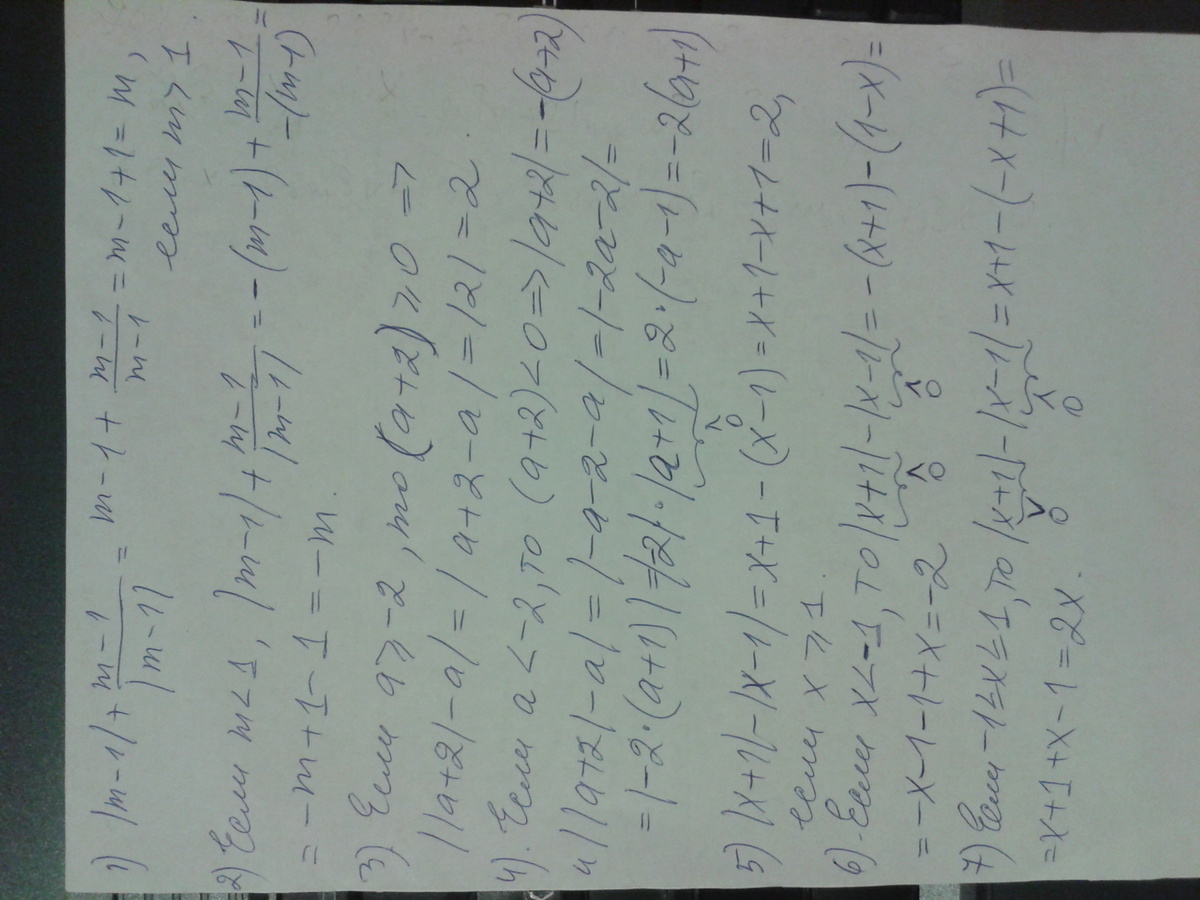 1) |m-1| + \frac{m-1}{|m-1|} = m-1 + \frac{m-1}{m-1} = m-1+1 = m,
если m > 1.
2) Если m < 1, |m-1| + \frac{m-1}{|m-1|} = -(m-1) + \frac{m-1}{-(m-1)} =
= -m+1-1 = -m.
3) Если a ≥ -2, то (a+2) ≥ 0 =>
||a+2|-a| = |a+2-a| = |2| = 2.
4). Если a < -2, то (a+2) < 0 => |a+2| = -(a+2)
и ||a+2|-a| = |-a-2-a| = |-2a-2| =
= |-2·(a+1)| = |-2|·|a+1| = 2·(-a-1) = -2(a+1)
^
0
5) |x+1|-|x-1| = x+1-(x-1) = x+1-x+1 = 2,
если x ≥ 1.
6). Если x < -1, то |x+1|-|x-1| = -(x+1)-(1-x) =
^ ^
0 0
= -x-1-1+x = -2
7) Если -1≤x≤1, то |x+1|-|x-1| = x+1-(-x+1) =
v ^
0 0
= x+1+x-1 = 2x.